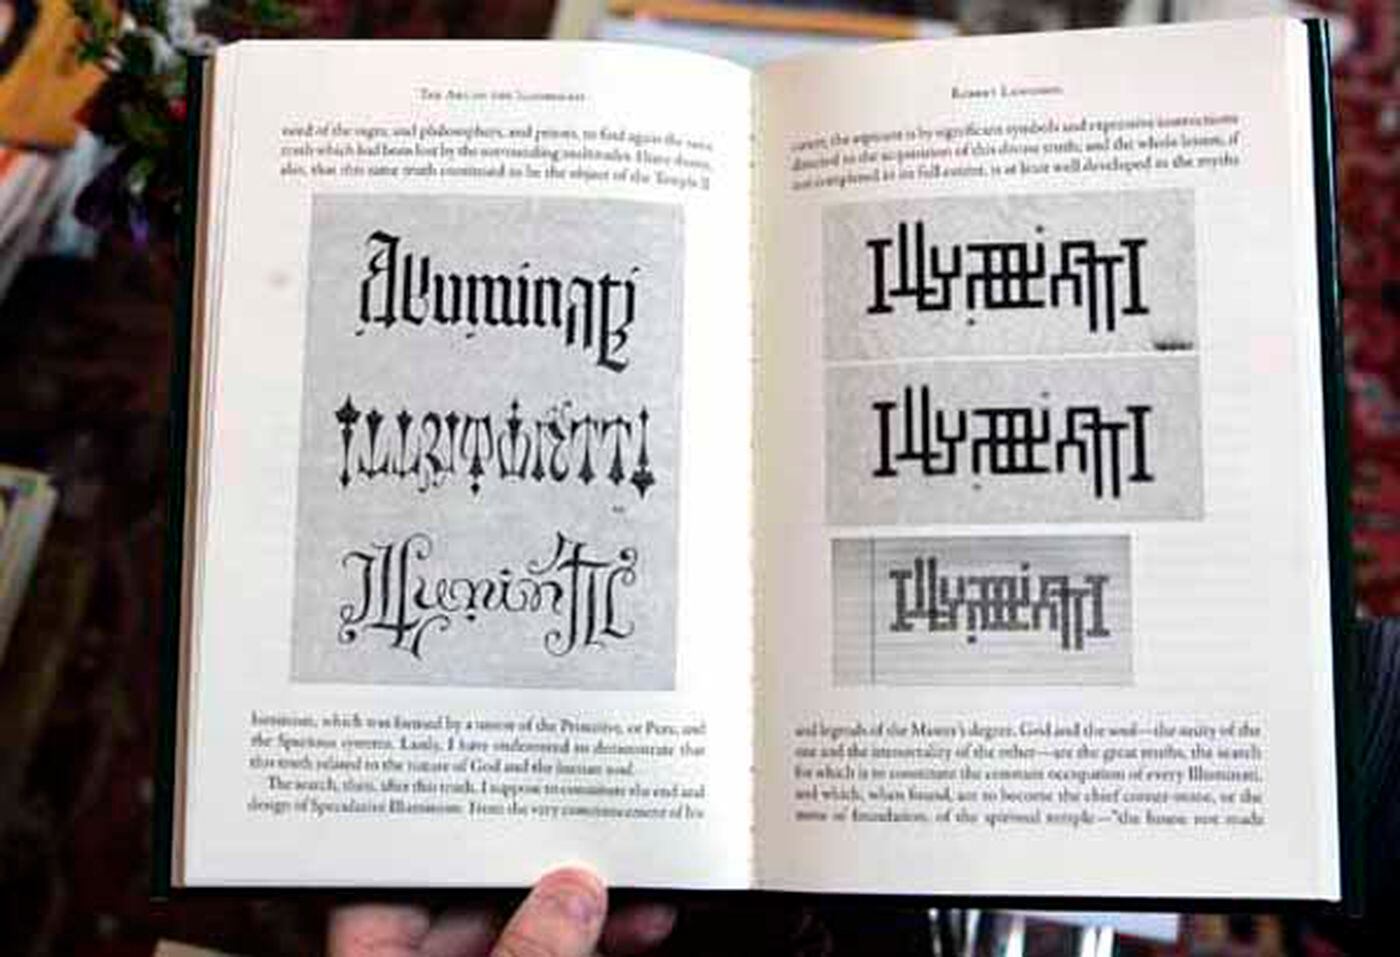 The Art of the Illuminati
need of the sages, and philosophers, and priests, to find again the same
truth which had been lost by the surrounding multitudes. I have shown,
also, that this same truth continued to be the object of the Temple
Illuminati
ILLUMINATI
Illuminati
Illuminism, which was formed by a union of the Primitive, or Pure, and
the Spurious systems. Lastly, I have endeavored to demonstrate that
this truth related to the nature of God and the human soul.
The search, then, after this truth, I suppose to constitute the end and
design of Speculative Illuminism. From the very commencement of his
Robert Langdon
career, the aspirant is by significant symbols and expressive instructions
directed to the acquisition of this divine truth; and the whole lesson, if
not completed in its full extent, is at least well developed in the myths
Illuminati
Illuminati
Illuminati
and legends of the Master's degree. God and the soul—the unity of the
one and the immortality of the other—are the great truths, the search
for which is to constitute the constant occupation of every Illuminati,
and which, when found, are to become the chief corner-stone, or the
stone of foundation, of the spiritual temple—"the house not made